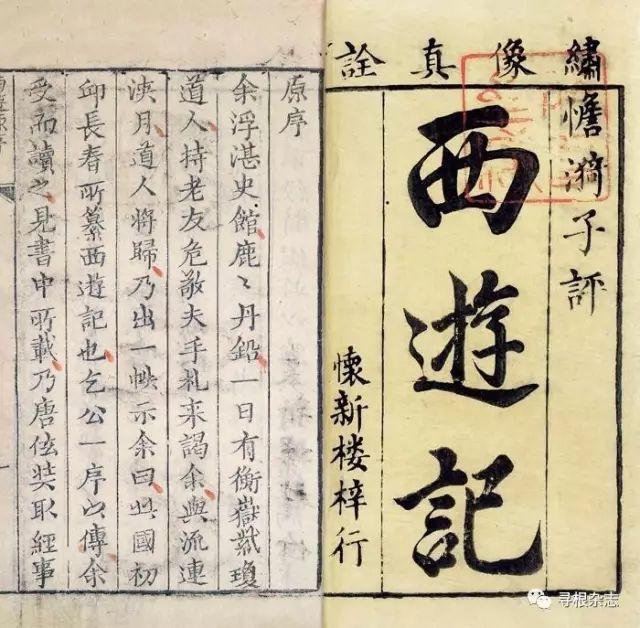 繡像真詮
憺漪子評
西遊記
懷新楼梓行
原序
余浮湛史館鹿〻丹鉛一日有衡嶽紫瓊
道人持老友危敬夫手札来謁余與流連
浹月道人将歸乃出一帙示余曰此國初
邱長春所纂西遊記也乞公一序以傳余
受而讀之見書中所載乃唐伭奘取經事
寻根杂志